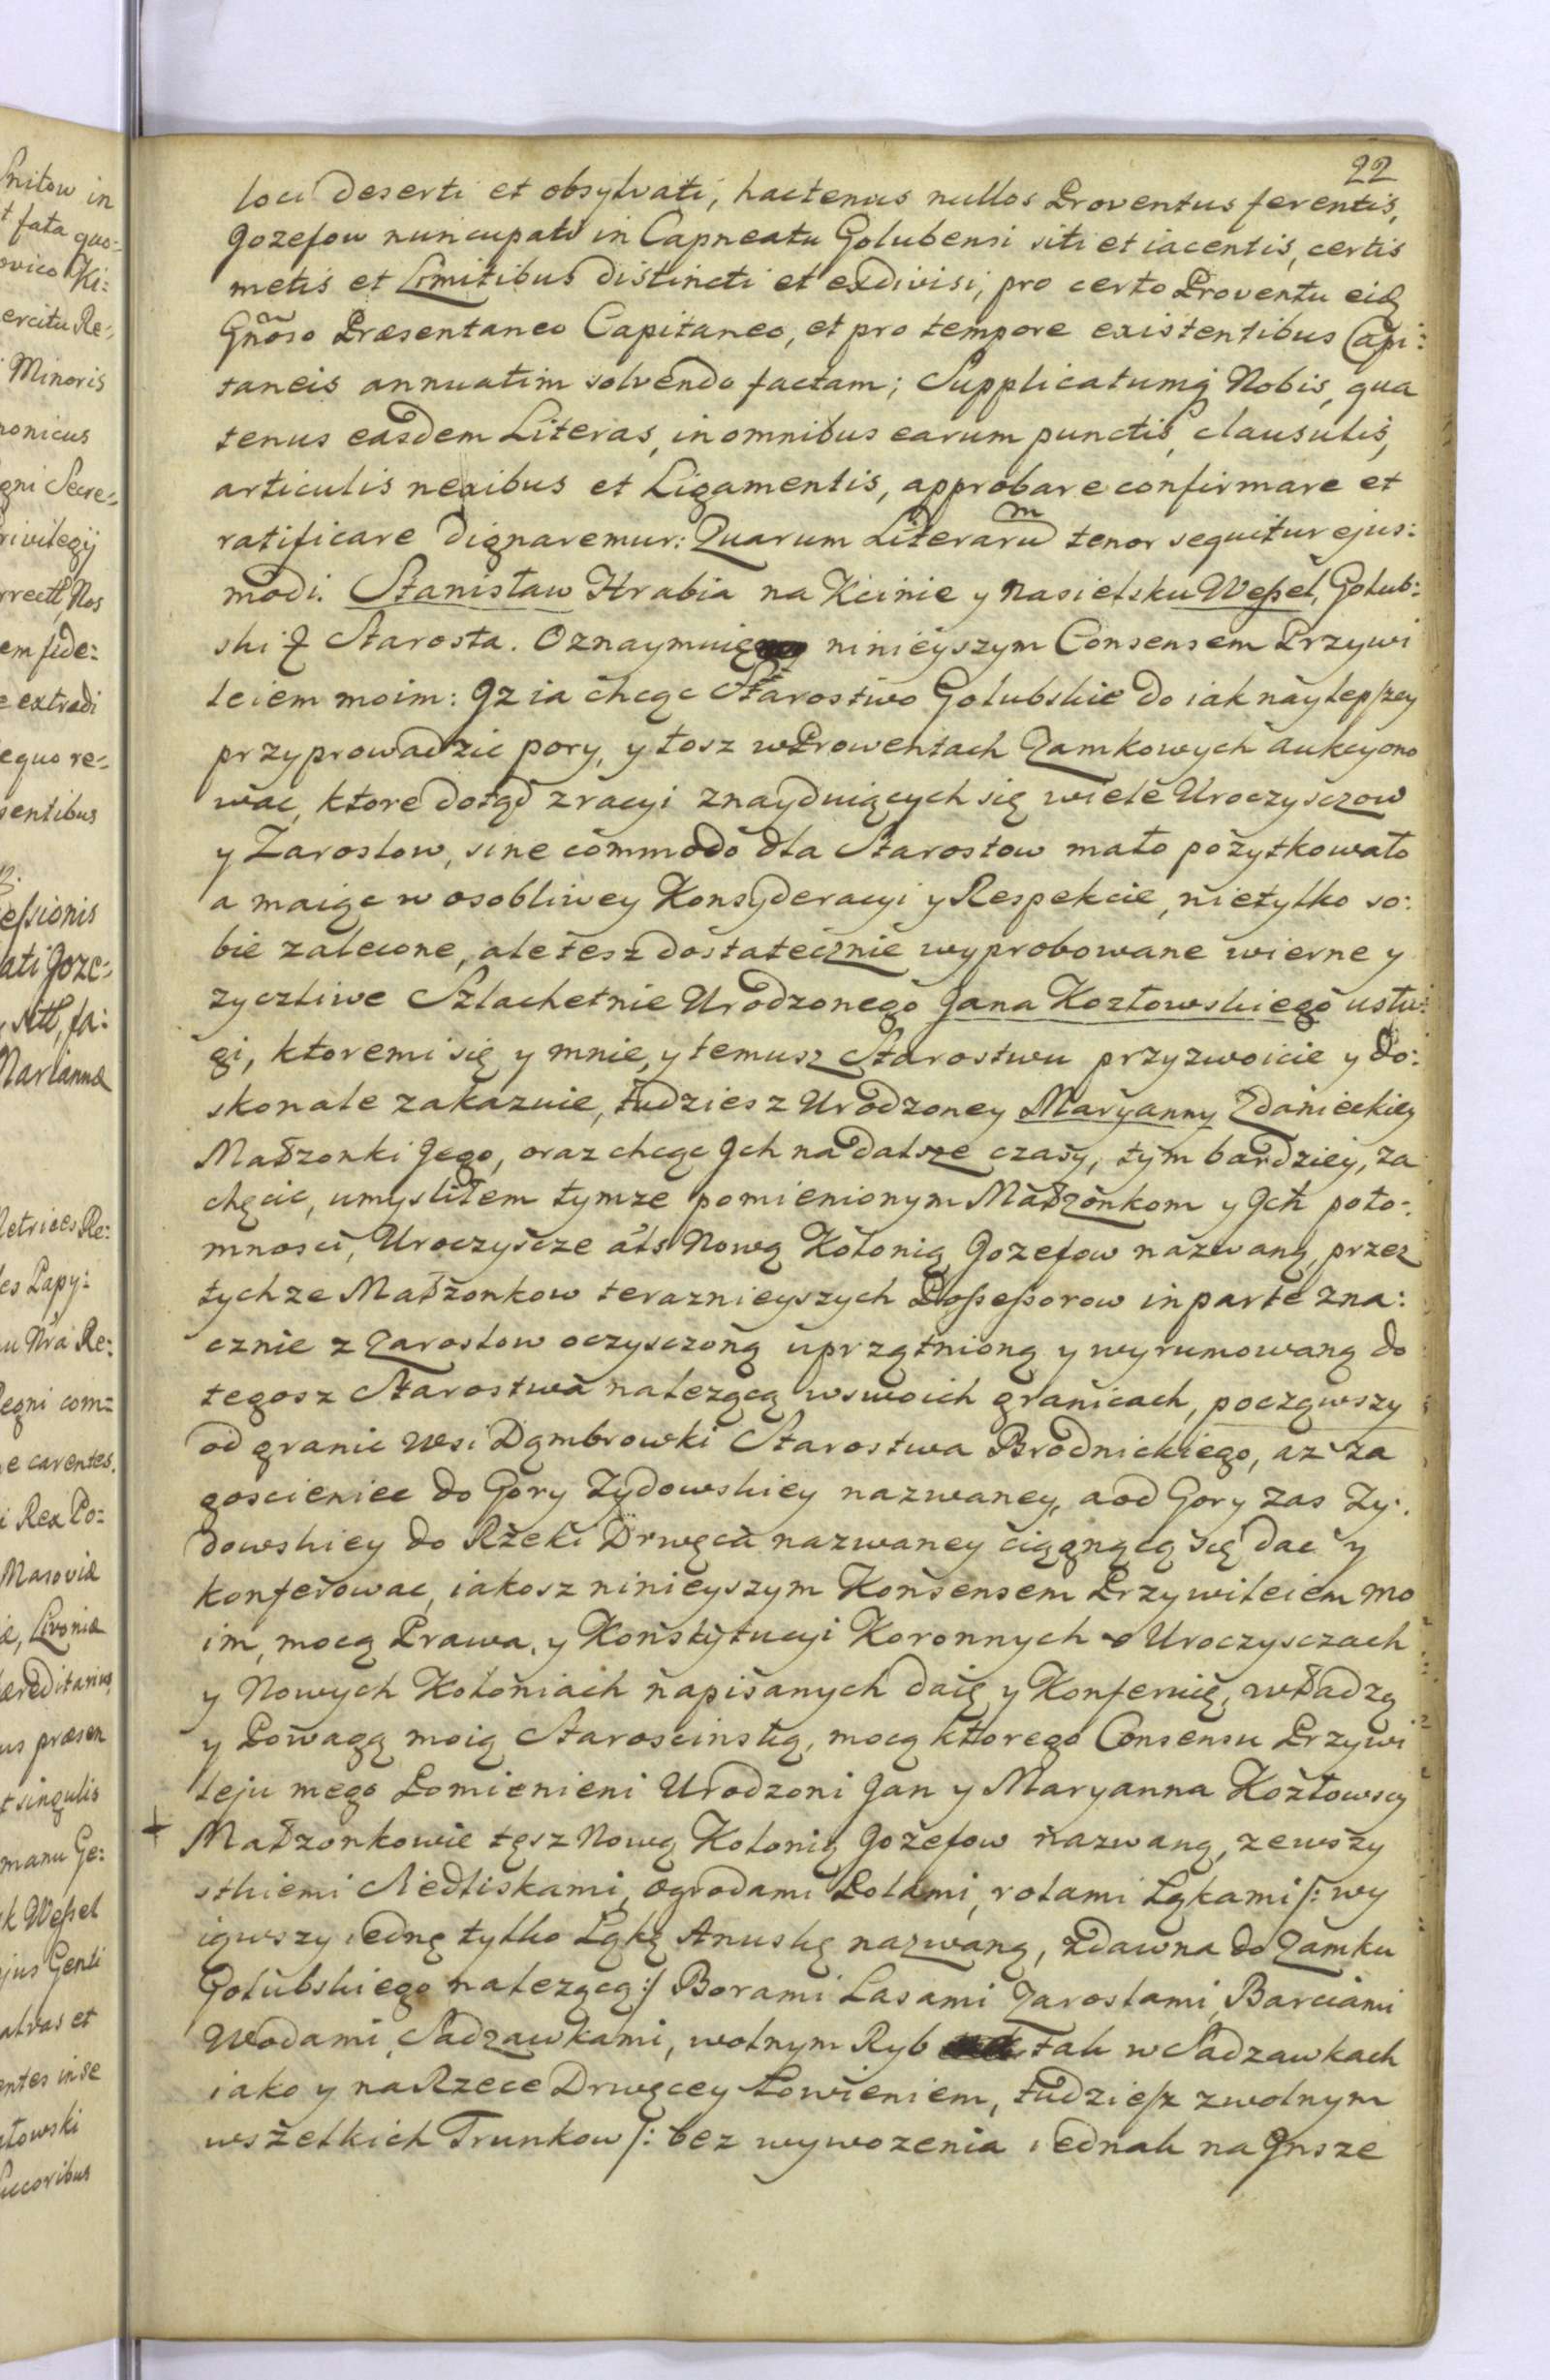 22
loci deserti et obsylvati, hactenus nullos Proventus ferentis,
Jozefow nuncupati in Capneatu Golubensi siti et iacentis, certis
metis et Limitibus distincti et exdivisi, pro certo Proventu eidẽ
Gnõso Præsentaneo Capitaneo, et pro tempore existentibus Capi:
taneis annuatim solvendo factam; Supplicatumq; Nobis, qua
tenus easdem Literas, in omnibus earum punctis, clausulis,
articulis nexibus et Ligamentis, approbare confirmare et
ratificare dignaremur: Quarum Literarum tenor sequitur ejus:
modi. Stanisław Hrabia na Kcinie y Nasielsku Weßel, Golub:
ski & Starosta. Oznaymuię ninieyszym Consensem Przywi
leiem moim: Jz ia chcąc Starostwo Golubskie do iak náylepszey
przyprowadzic pory, y tosz w Prowentach Zamkowych aukcyono
wac, ktore dotąd z racyi znayduiących się wiele Uroczysczow
y Zaroslow, sine commodo dla Starostow mało pożytkowało
a maiąc w osobliwey Konsyderacyi y Respekcie, nietylko so:
bie zalecone, ale tesz dostatecznie wyprobowane wierne y
zyczliwe Szlachetnie Urodzonego Jana Kozłowskiego usłu:
gi, ktoremi się y mnie, y temusz Starostwu przyzwoicie y do:
skonale zakazuie, tudziesz Urodzoney Maryanny Zdanieckiey
Małzonki Jego, oraz chcąc Jch na dalsze czasy, tym bardziey, za
chęcic, umysliłem tymze pomienionym Małzonkom y Jch poto:
mnosci, Uroczyscze als Nową Kolonią Jozefow nazwaną, przez
tychze Małzonkow teraznieyszych Poßeßorow in parte zna:
cznie z Zaroslow oczysczoną uprzątnioną y wyrumowaną do
tegosz Starostwa nalezącą w swoich granicach, począwszy
od granic wsi Dąmbrowki Starostwa Brodnickiego, az za
gosciniec do Gory Zydowskiey nazwaney, a od Gory zas Zy:
dowskiey do Rzeki Drwęca nazwaney ciągnącą się dac y
konferowac, iakosz ninieyszym Konsensem Przywileiem mo
im, mocą Prawa, y Konstytucyi Koronnych o Uroczysczach
y Nowych Koloniach napisanych daię y Konferuię, władzą
y Powagą moią Staroscinską, mocą ktorego Consensu Przywi
leju mego Pomienieni Urodzoni Jan y Maryanna Kozłowscy
+ Małzonkowie tęsz Nową Kolonią Jozefow nazwaną, zewszy
stkiemi Siedliskami, ogrodami Polami, rolami Ląkami /: wy
iąwszy iedną tylko Ląkę Anuskę nazwaną, zdawna do Zamku
Golubskiego nalezącą :/ Borami Lasami Zaroslami, Barciami
Wodami, Sadzawkami, wolnym Ryb tak w Sadzawkach
iako y na Rzece Drwęcey Łowieniem, tudziesz z wolnym
wszelkich Trunkow /: bez wywozenia iednak na Jnsze